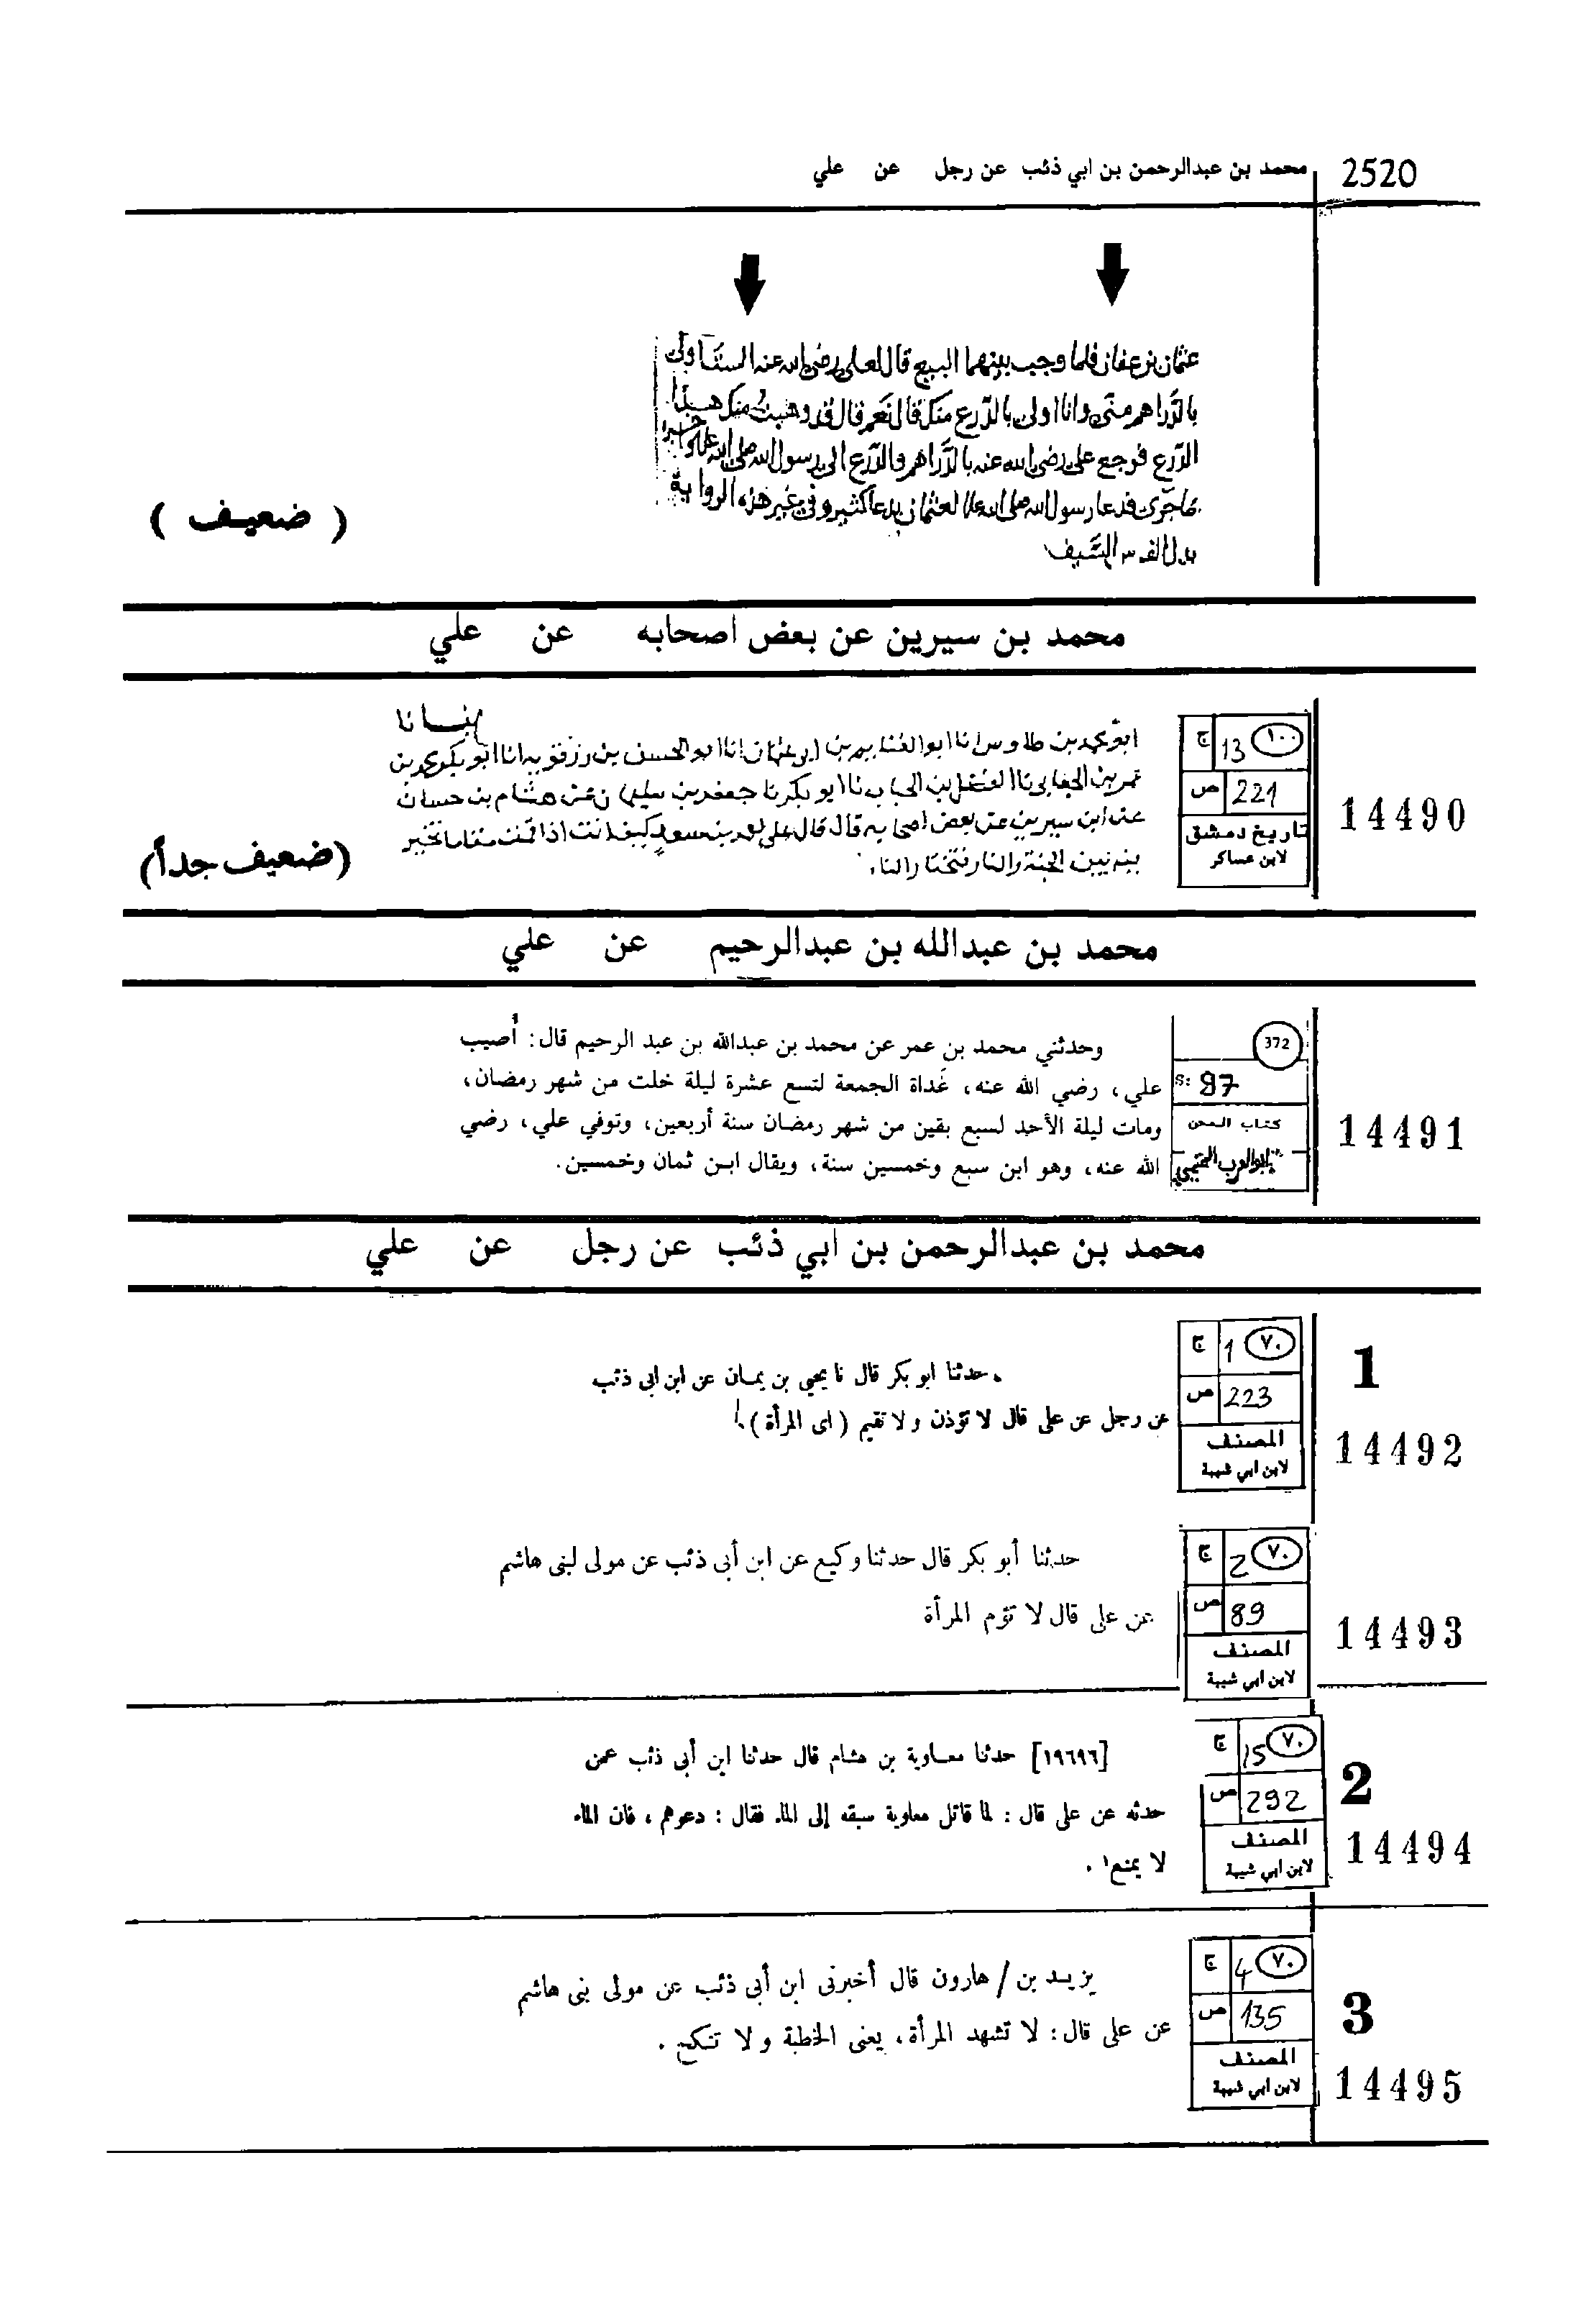 2520
محمد بن عبدالرحمن بن ابي ذئب عن رجل عن علي
عثمان بن عفان فلما وجب بينهما البيع قال لعلى رضى الله عنه الست اولى
بالدراهم منى وانا اولى بالدرع منك قال نعم قال قد وهبت منك هذا
الدرع فرجع على رضى الله عنه بالدراهم والدرع الى رسول الله صلى الله
جرى فدعا رسول الله صلى الله لعثمان بدعاء كثير وفى غير هذه الرواية
السيف
( ضعيف )
محمد بن سيرين عن بعض اصحابه عن علي
14490
ج 13 ١٠٠
ص 221
تاريخ دمشق
لابن عساكر
انبانا
ابو محمد بن طاوس انا ابو الغنايم بن ابي عثمان انا ابو الحسن بن رزقويه انا ابو بكر محمد بن
عمر بن الجعابي نا الفضل بن الحباب نا ابو بكر نا جعفر بن سليمان عن هشام بن حسان
عن ابن سيرين عن بعض اصحابه قال قال علي لعمر بن سعد كيف انت اذا قمت مقاما تخير
فيه بين الجنة والنار فتختار النار
(ضعيف جداً)
محمد بن عبدالله بن عبدالرحيم عن علي
14491
372
S: 87
كتاب المحن
ابو العرب التميمي
وحدثني محمد بن عمر عن محمد بن عبدالله بن عبد الرحيم قال: أصيب
علي، رضي الله عنه، غداة الجمعة لتسع عشرة ليلة خلت من شهر رمضان،
ومات ليلة الأحد لسبع بقين من شهر رمضان سنة أربعين، وتوفي علي، رضي
الله عنه، وهو ابن سبع وخمسين سنة، ويقال ابن ثمان وخمسين.
محمد بن عبدالرحمن بن ابي ذئب عن رجل عن علي
1
14492
ج 1 ٧٠
ص 223
المصنف
لابن ابي شيبة
حدثنا ابو بكر قال نا يحيى بن يمان عن ابن ابى ذئب
عن رجل عن على قال لا تؤذن ولا تقيم ( اى المرأة ).
14493
ج 2 ٧٠
ص 89
المصنف
لابن ابي شيبة
حدثنا أبو بكر قال حدثنا وكيع عن ابن أبى ذئب عن مولى لبنى هاشم
عن على قال لا تؤم المرأة
2
14494
ج 15 ٧٠
ص 292
المصنف
لابن ابي شيبة
[١٩٦٩٦] حدثنا معاوية بن هشام قال حدثنا ابن أبى ذئب عمن
حدثه عن على قال : لما قاتل معاوية سبقه إلى الماء فقال : دعوهم ، فان الماء
لا يمنع١ .
3
14495
ج 4 ٧٠
ص 135
المصنف
لابن ابي شيبة
يزيد بن / هارون قال أخبرنى ابن أبى ذئب عن مولى بنى هاشم
عن على قال: لا تشهد المرأة، يعنى الخطبة ولا تنكح .